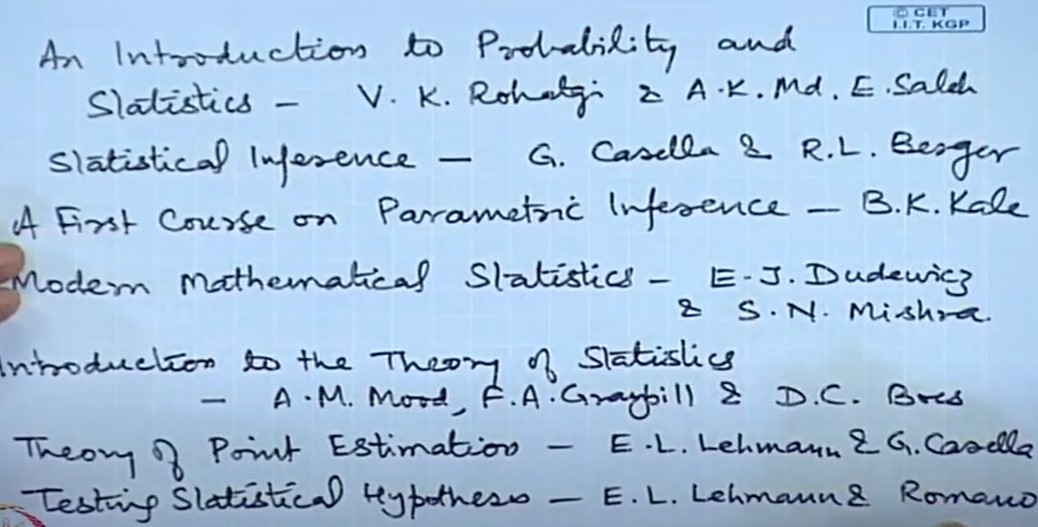 © CET
I.I.T. KGP
An Introduction to Probability and
Statistics – V. K. Rohatgi & A.K. Md. E. Saleh
Statistical Inference – G. Casella & R.L. Berger
A First Course on Parametric Inference – B.K. Kale
Modern Mathematical Statistics – E.J. Dudewicz
& S.N. Mishra.
Introduction to the Theory of Statistics
– A.M. Mood, F.A. Graybill & D.C. Boes
Theory of Point Estimation – E.L. Lehmann & G. Casella
Testing Statistical Hypotheses – E.L. Lehmann & Romano